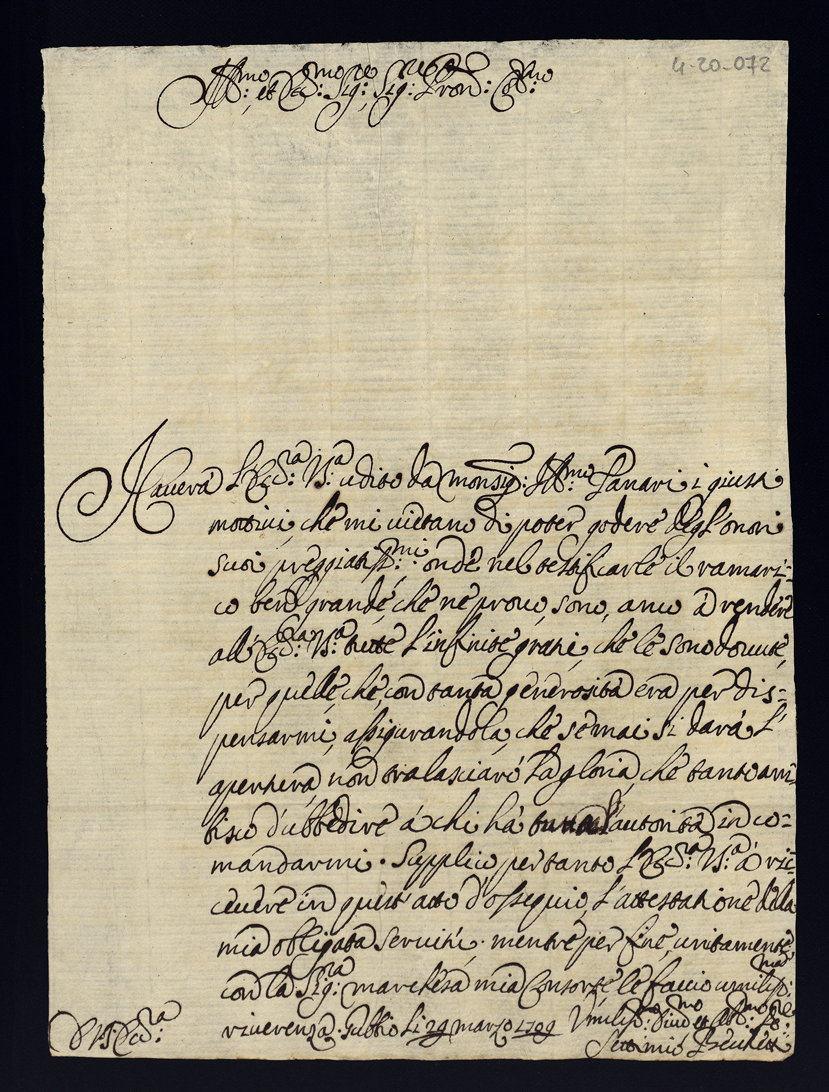 4-20-072
Ill:mo et Ecc:mo Sig:re Sig:re Pron: Co:mo
Haverà l'Ecc:za V:ra udito da Monsig: Ill:mo Lanari i giusti
mottivi, che mi vietano di poter godere degl'onori
suoi preggiatiss:mi onde nel testificarle il ramari=
co ben grande, che ne provo, sono, anco à rendere
all'Ecc:za V:ra tutte l'infinite grazie, che le sono dovute,
per quelle, che, con tanta generosità era per dis=
pensarmi, assigurandola, che se mai si darà l'
apertura non tralasciarò la gloria, che tanto am=
bisco d'ubbedire à chi hà tutta l'autorità in co=
mandarmi. Supplico per tanto l'Ecc:za V:ra à ric=
cevere in quest'atto d'ossequio, l'attestatione della
mia obligata servitù. mentre per fine, unitamente
con la Sig:ra marchesa mia Consorte le faccio umiliss:ma
riverenza. Gubbio li 29 marzo 1709
D V Ecc:za
Umiliss:mo Div:mo et Obl:mo Se:re